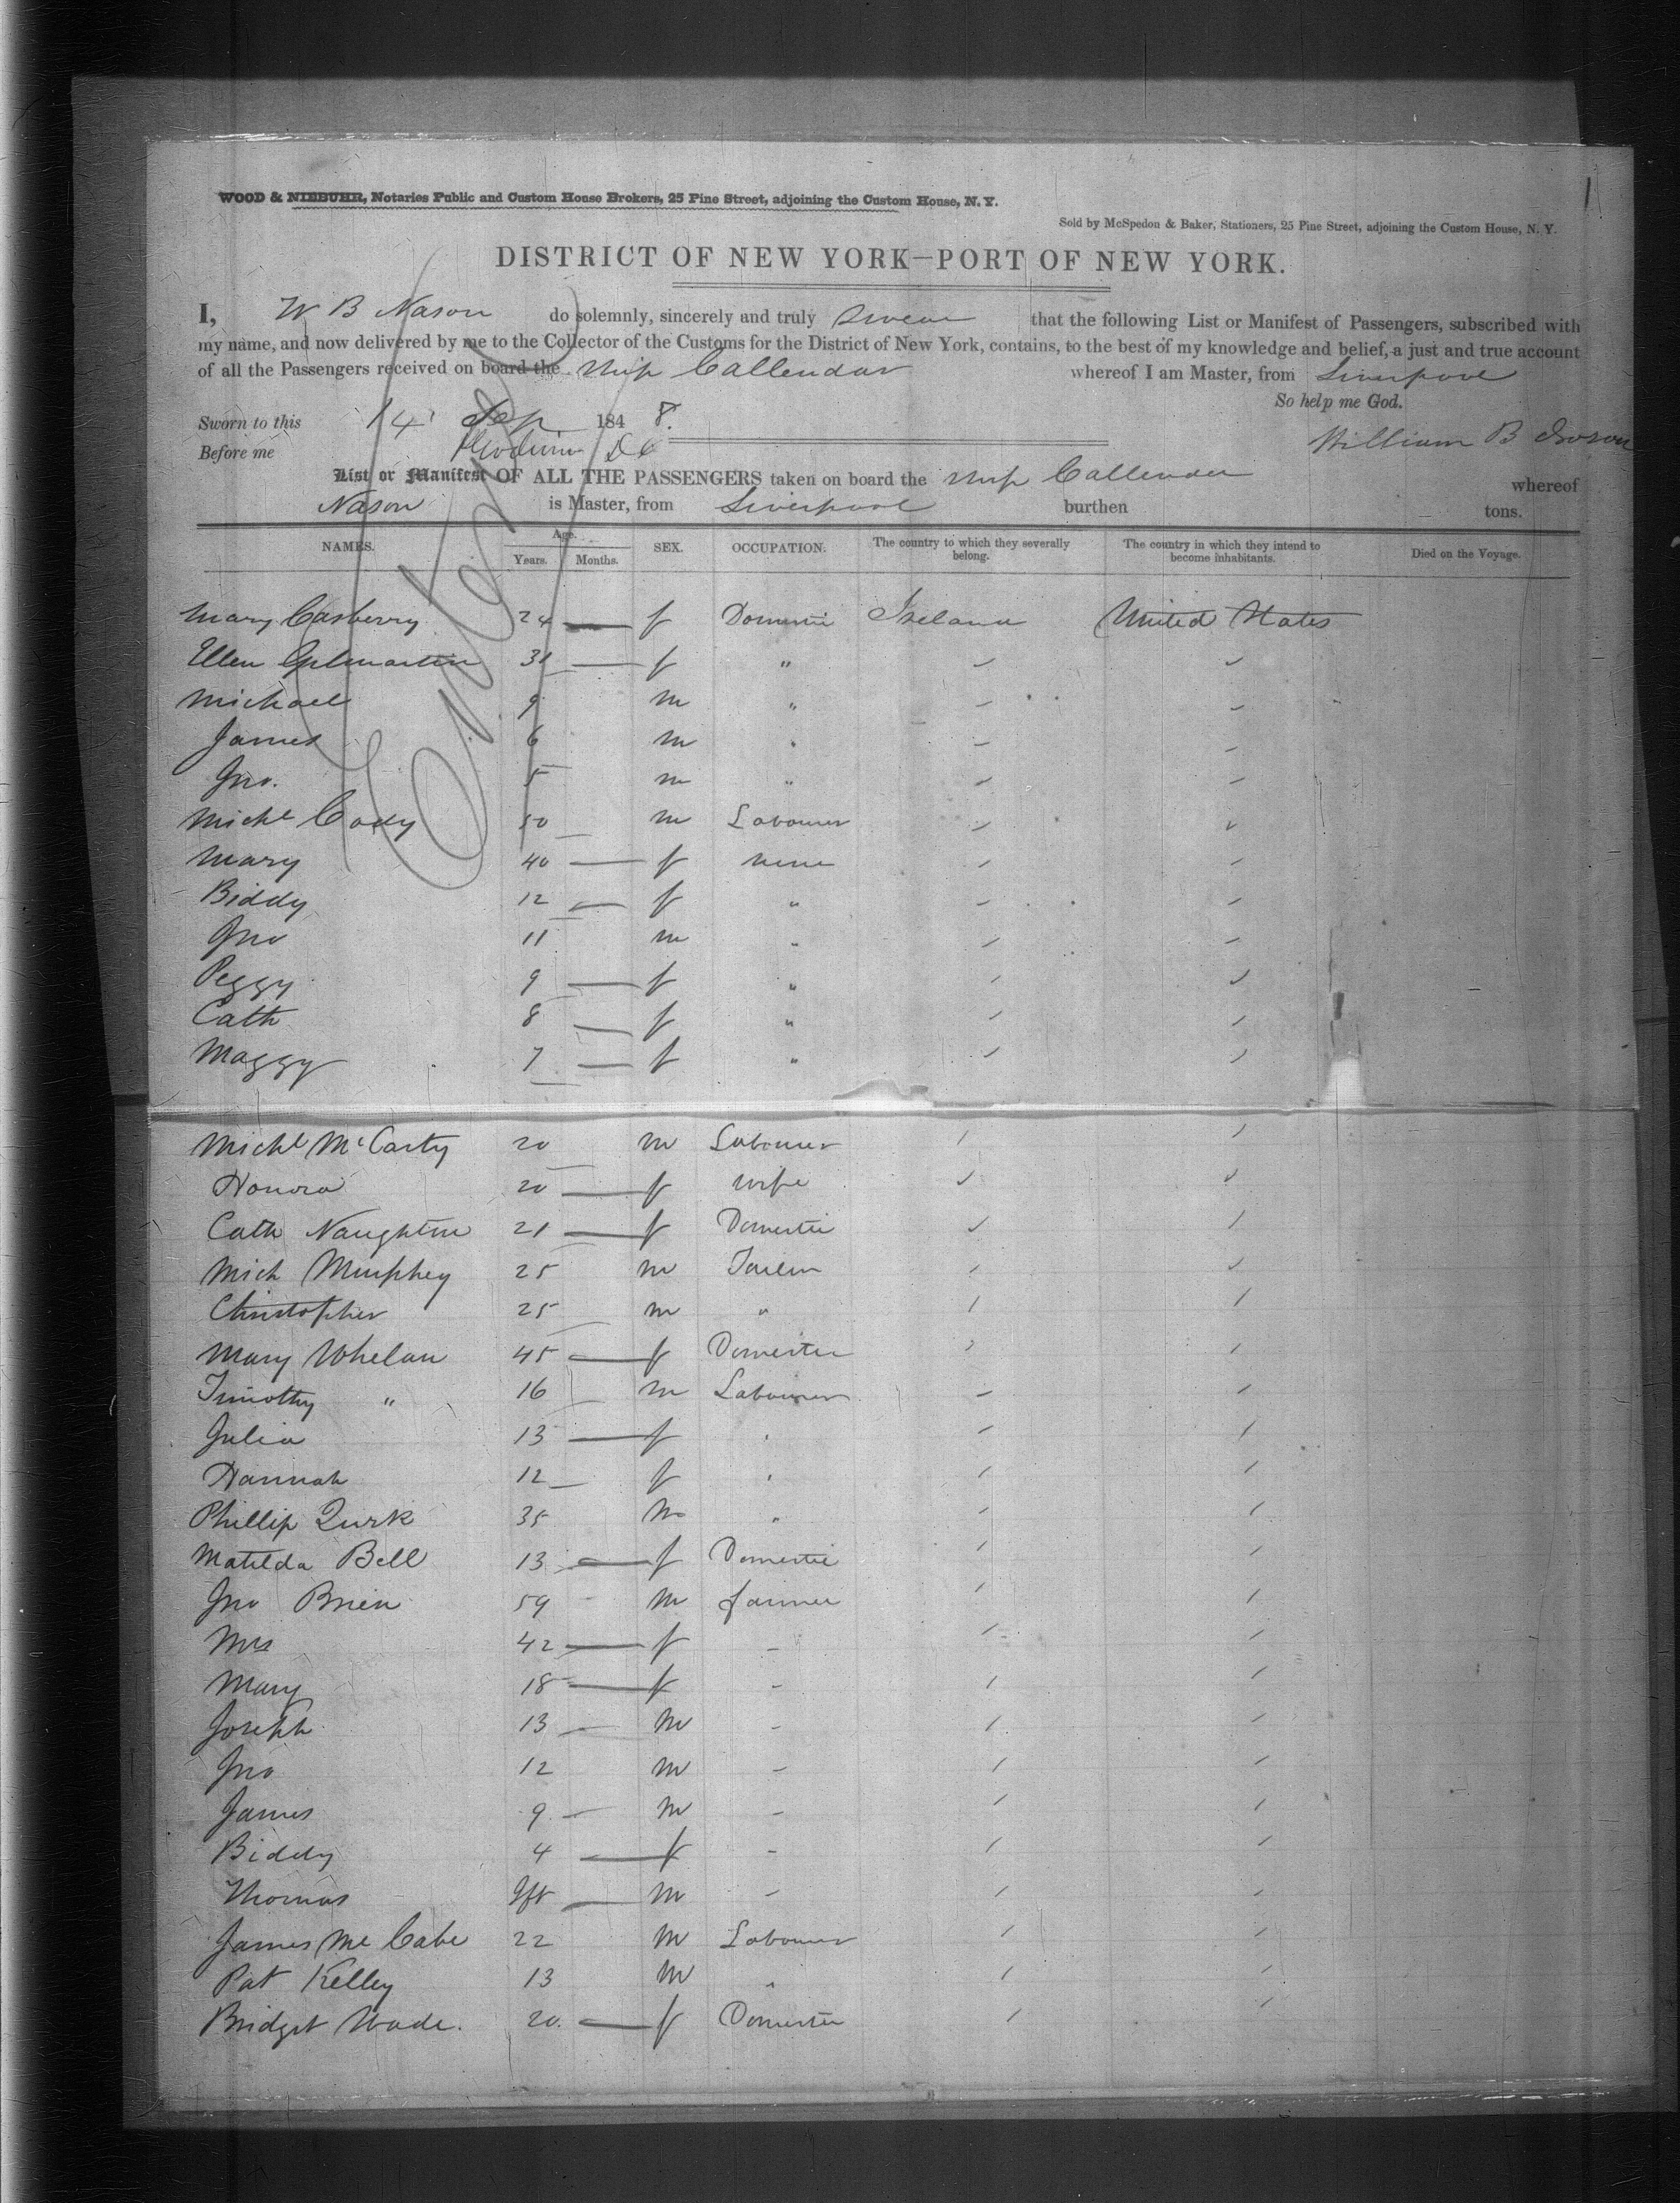 1
WOOD & NIEBUHR, Notaries Public and Custom House Brokers, 25 Pine Street, adjoining the Custom House, N. Y.
Sold by McSpedon & Baker, Stationers, 25 Pine Street, adjoining the Custom House, N. Y.
DISTRICT OF NEW YORK—PORT OF NEW YORK.
I, W B Nason do solemnly, sincerely and truly swear that the following List or Manifest of Passengers, subscribed with
my name, and now delivered by me to the Collector of the Customs for the District of New York, contains, to the best of my knowledge and belief, a just and true account
of all the Passengers received on board the Ship Callendar whereof I am Master, from Liverpool
So help me God.
Sworn to this 14 Sep 1848.
Before me William B
List or Manifest OF ALL THE PASSENGERS taken on board the Ship Callender whereof
Nason is Master, from Liverpool burthen tons.
NAMES. Age. Years. Months. SEX. OCCUPATION. The country to which they severally belong. The country in which they intend to become inhabitants. Died on the Voyage.
Entered
Mary Casberry 24 — f Domestic Ireland United States
Ellen Gilmartin 31 — f "
Michael 9 m "
James 6 m "
Jno. 5 m "
Michl Cody 50 m Labourer
Mary 40 — f
Biddy 12 — f "
Jno 11 m "
Peggy 9 — f "
Cath 8 — f "
Maggy 7 — f "
Michl McCarty 20 m Labourer
Honora 20 — f Wife
Cath Naughton 21 — f Domestic
Mich Murphey 25 m Tailor
Christopher 25 m "
Mary Whelan 45 — f Domestic
Timothy " 16 m Labourer
Julia 13 — f "
Hannah 12 f "
Phillip Quirk 35 m "
Matilda Bell 13 — f Domestic
Jno Brien 59 m farmer
Mrs 42 — f -
Mary 18 — f -
Joseph 13 m -
Jno 12 m -
James 9 m -
Biddy 4 — f -
Thomas Ift m -
James Mc Cabe 22 m Labourer
Pat Kelley 13 m "
Bridget Wade. 20. — f Domestic